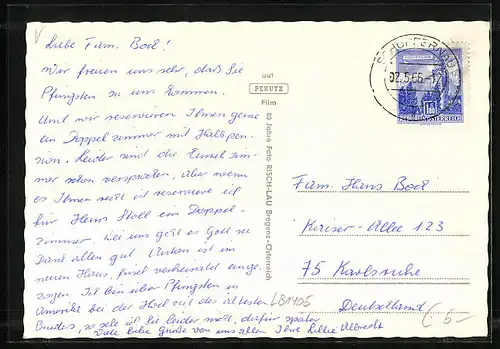 Liebe Fam. Bock!
Wir freuen uns sehr, daß Sie
Pfingsten zu uns kommen.
Und wir reservieren Ihnen gerne
ein Doppelzimmer mit Halbpen-
sion. Leider sind die Einzelzim-
mer schon vergeben, aber wenn
es Ihnen recht ist reserviere ich
für Herrn Stoll ein Doppel-
zimmer. Bei uns geht es Gott sei
Dank allen gut. Anton ist im
neuen Haus, frisch verheiratet einge-
zogen. Ich bin über Pfingsten in
Amerika bei der Hochzeit des ältesten
Bruders, so sehe ich Sie leider nicht, dafür später
Viele liebe Grüße von uns allen Ihre Albrecht
auf
PERUTZ
Film
80 Jahre Foto RISCH-LAU Bregenz-Österreich
02.5.66-17
ÖSTERREICH
Fam. Hans Bock
Kaiser-Allee 123
75 Karlsruhe
Deutschland
LB1405
6-